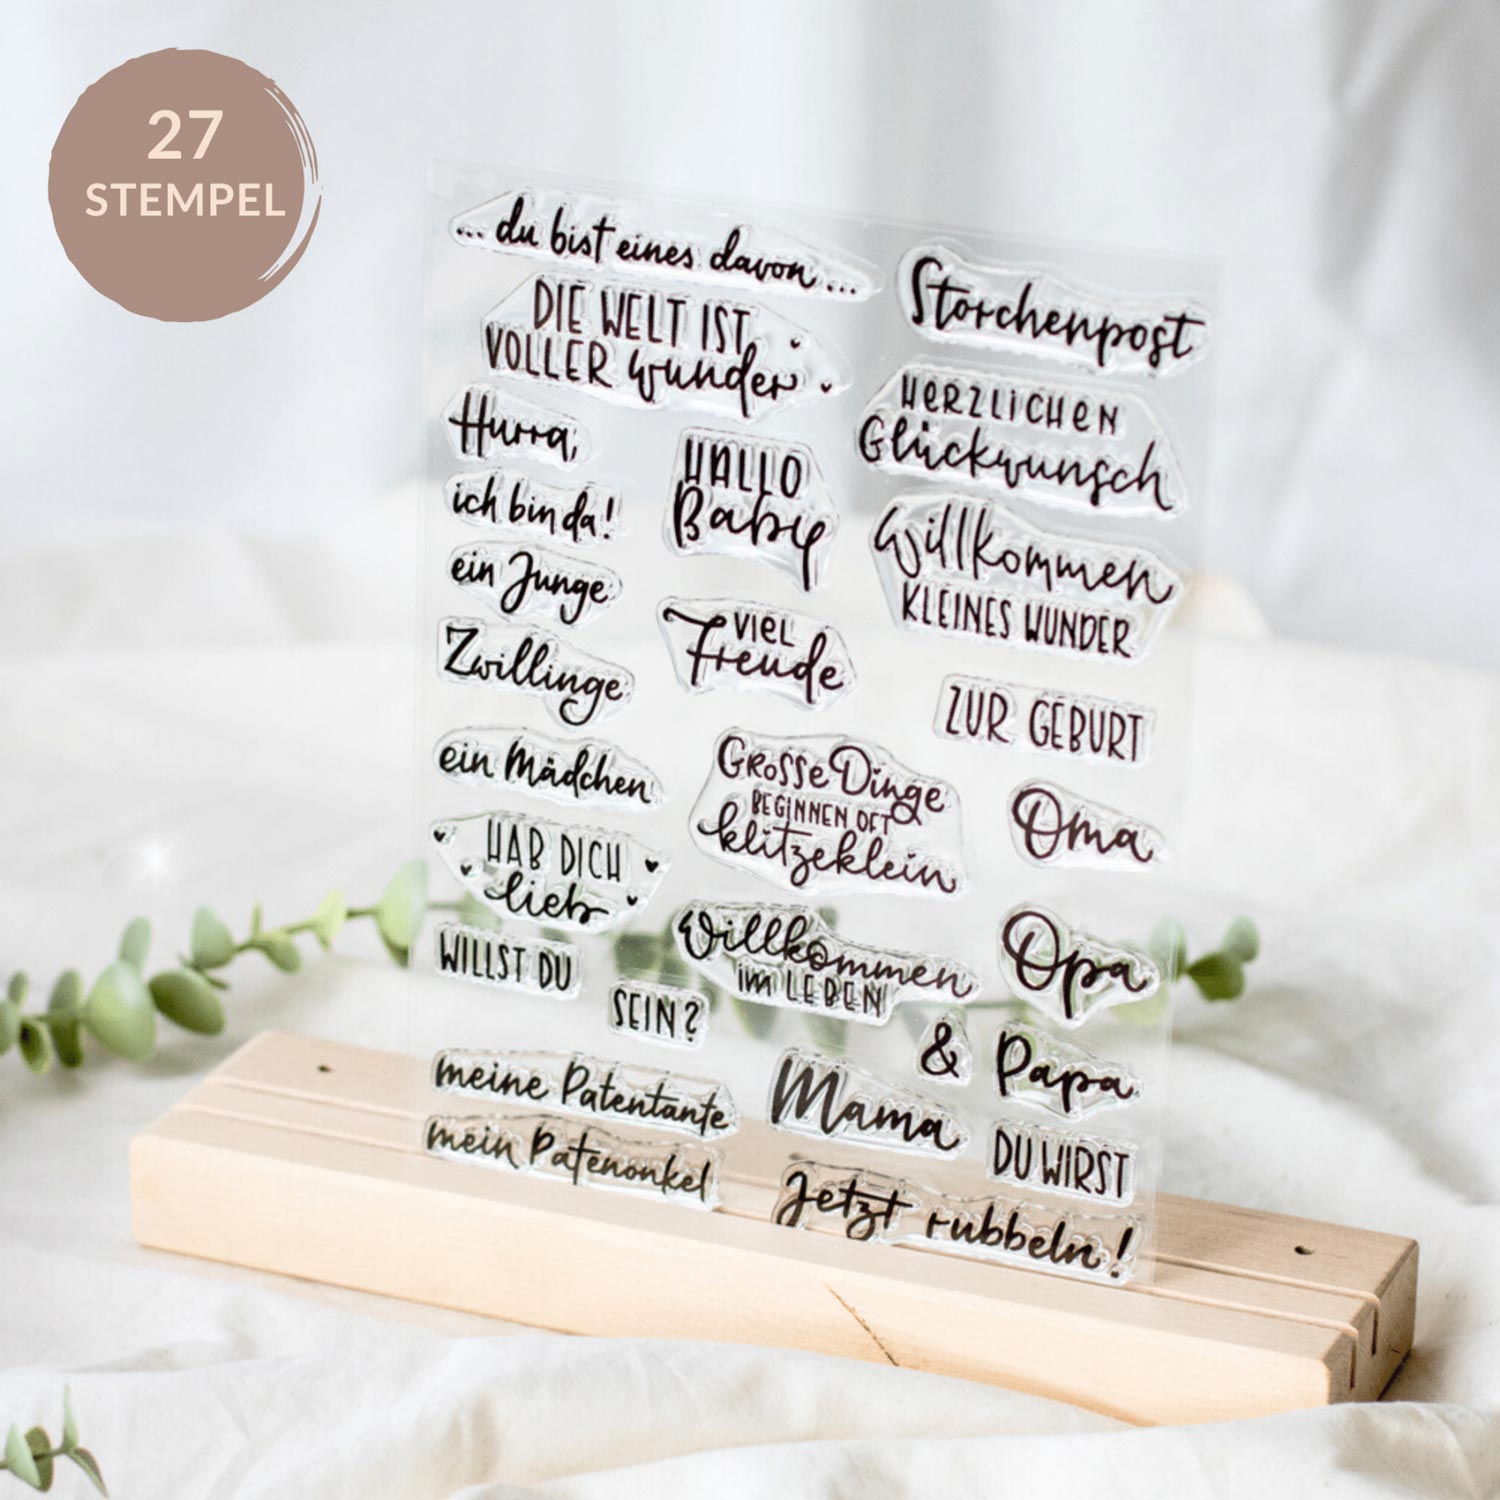 27
STEMPEL
... du bist eines davon ...
Storchenpost
DIE WELT IST
VOLLER wunder
HERZLICHEN
Glückwunsch
Hurra,
HALLO
Baby
ich bin da!
Willkommen
KLEINES WUNDER
ein Junge
VIEL
Freude
Zwillinge
ZUR GEBURT
ein Mädchen
GROSSE Dinge
BEGINNEN OFT
klitzeklein
Oma
HAB DICH
lieb
Willkommen
IM LEBEN
Opa
WILLST DU
SEIN?
&
Papa
meine Patentante
Mama
mein Patenonkel
DU WIRST
Jetzt rubbeln!